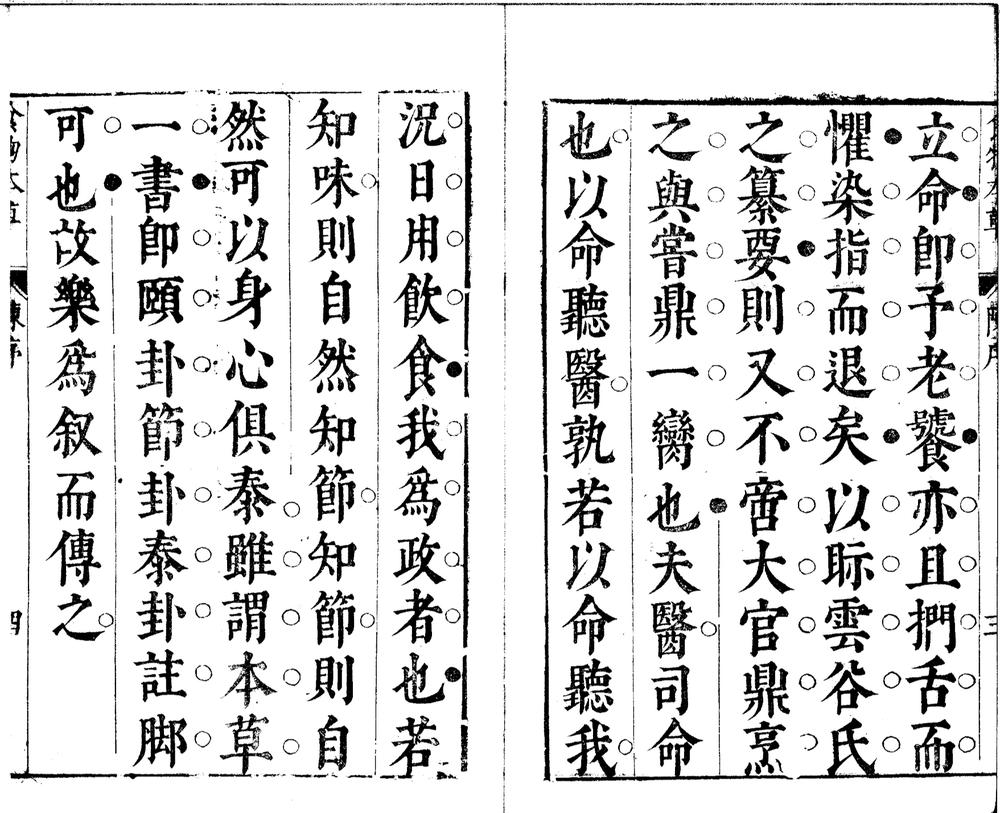 立命卽予老饕亦且捫舌而
懼染指而退矣以眎雲谷氏
之纂要則又不啻大官鼎烹
之與嘗鼎一臠也夫醫司命
也以命聽醫孰若以命聽我
況日用飲食我爲政者也若
知味則自然知節知節則自
然可以身心俱泰雖謂本草
一書卽頤卦節卦泰卦註脚
可也故樂爲叙而傳之
陳序
四